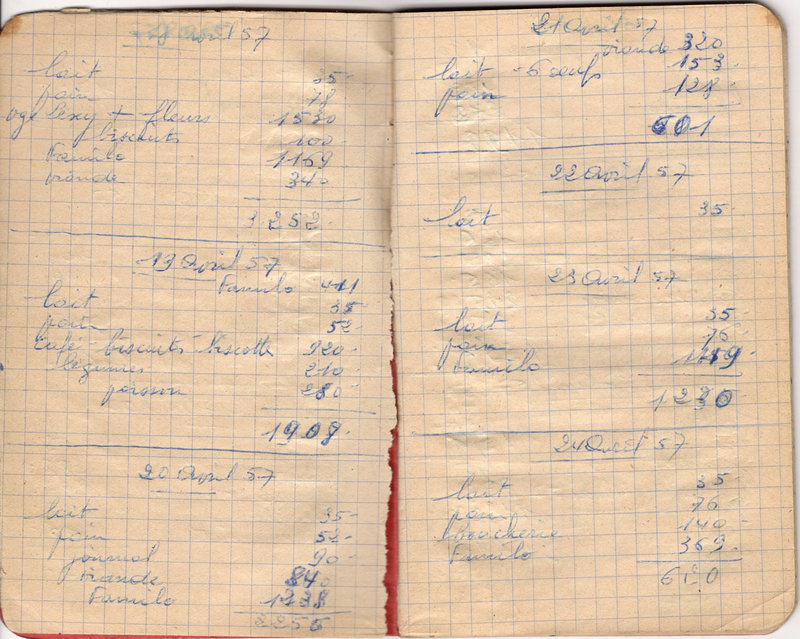 18 avril 57
lait 35-
pain 78
+ fleurs 1530
biscuits 100
Familo 1169
viande 340
3252-
19 Avril 57
Familo 411
lait 35
pain 52-
Café - biscuits - biscotte 920-
légumes 210
poisson 280
1908-
20 Avril 57
lait 35-
pain 52-
journal 90-
viande 840
Familo 1238
2255
21 Avril 57
viande 320
lait - 6 oeufs 153-
pain 128-
601
22 Avril 57
lait 35-
23 Avril 57
lait 35-
pain 76-
Familo 1119-
1230-
24 57
lait 35
pain 76-
boucherie 140-
Familo 369-
620